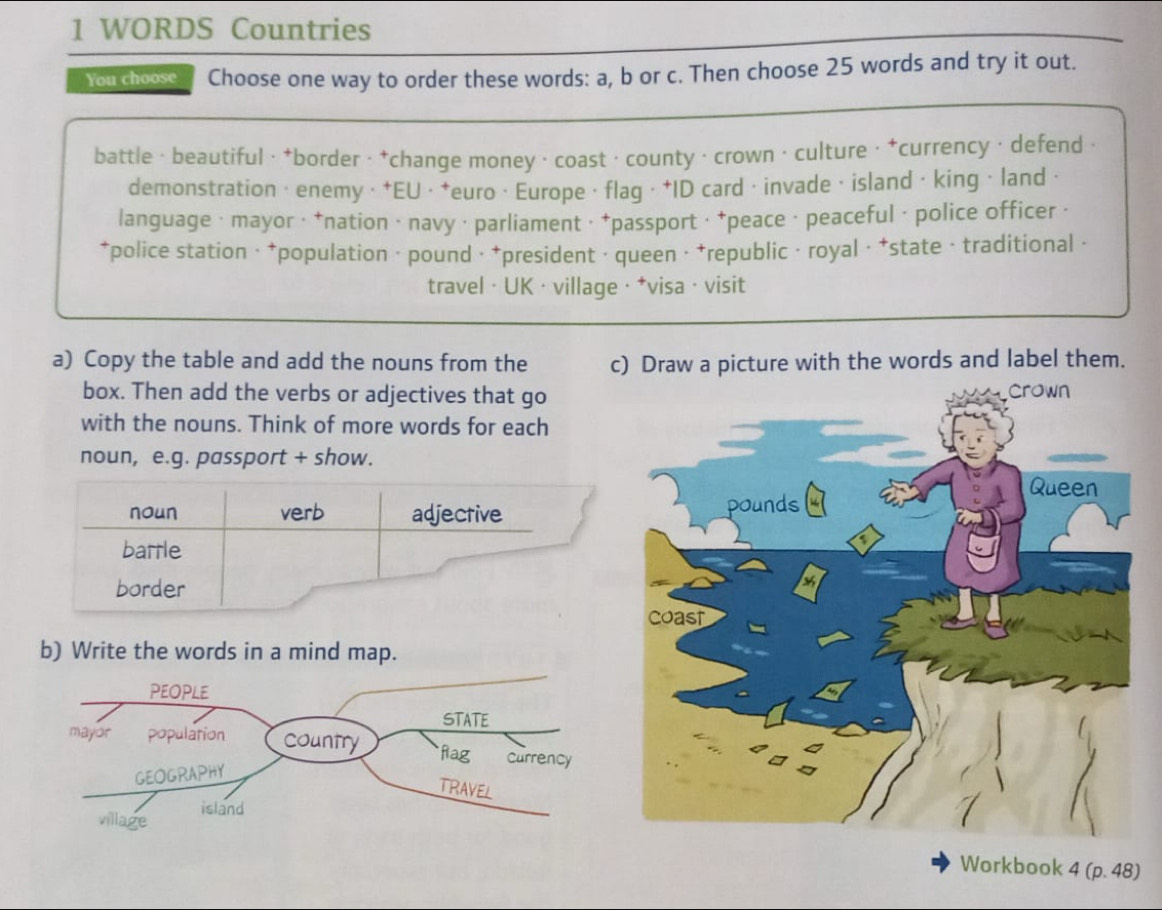 1 WORDS Countries
You choose Choose one way to order these words: a, b or c. Then choose 25 words and try it out.
battle · beautiful · +border · +change money · coast · county · crown · culture · +currency · defend ·
demonstration · enemy · +EU · +euro · Europe · flag · +ID card · invade · island · king · land ·
language · mayor · +nation · navy · parliament · +passport · +peace · peaceful · police officer ·
+police station · +population · pound · +president · queen · +republic · royal · +state · traditional ·
travel · UK · village · +visa · visit
a) Copy the table and add the nouns from the
box. Then add the verbs or adjectives that go
with the nouns. Think of more words for each
noun, e.g. passport + show.
noun verb adjective
battle
border
b) Write the words in a mind map.
PEOPLE
mayor population
country
STATE
flag currency
GEOGRAPHY
village island
TRAVEL
c) Draw a picture with the words and label them.
crown
Queen
pounds
coast
Workbook 4 (p. 48)